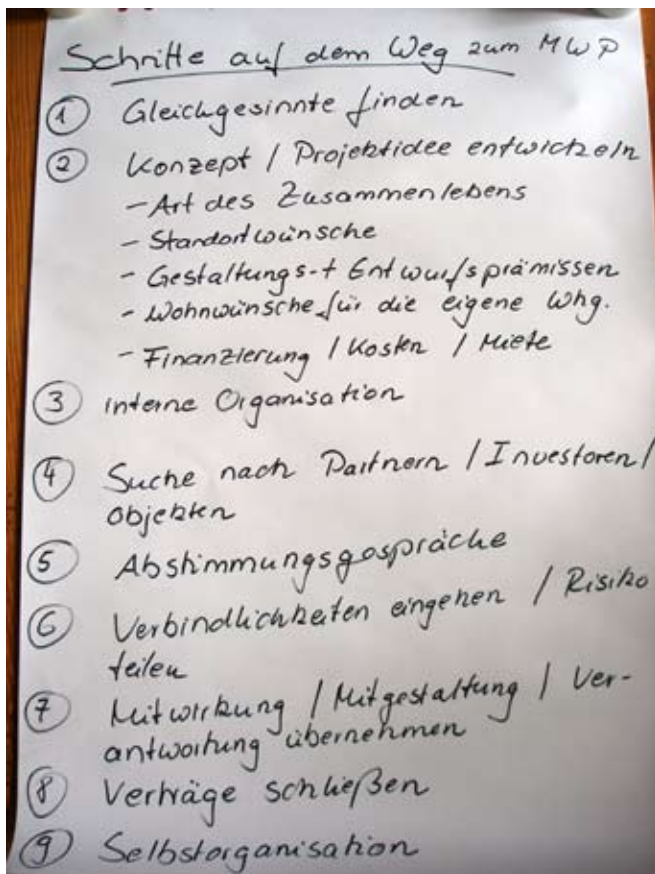 Schritte auf dem Weg zum MWP
1 Gleichgesinnte finden
2 Konzept / Projektidee entwickeln
- Art des Zusammenlebens
- Standortwünsche
- Gestaltungs- + Entwurfsprämissen
- Wohnwünsche für die eigene Whg.
- Finanzierung / Kosten / Miete
3 interne Organisation
4 Suche nach Partnern / Investoren /
objekten
5 Abstimmungsgespräche
6 Verbindlichkeiten eingehen / Risiko
teilen
7 Mitwirkung / Mitgestaltung / Ver-
antwortung übernehmen
8 Verträge schließen
9 Selbstorganisation